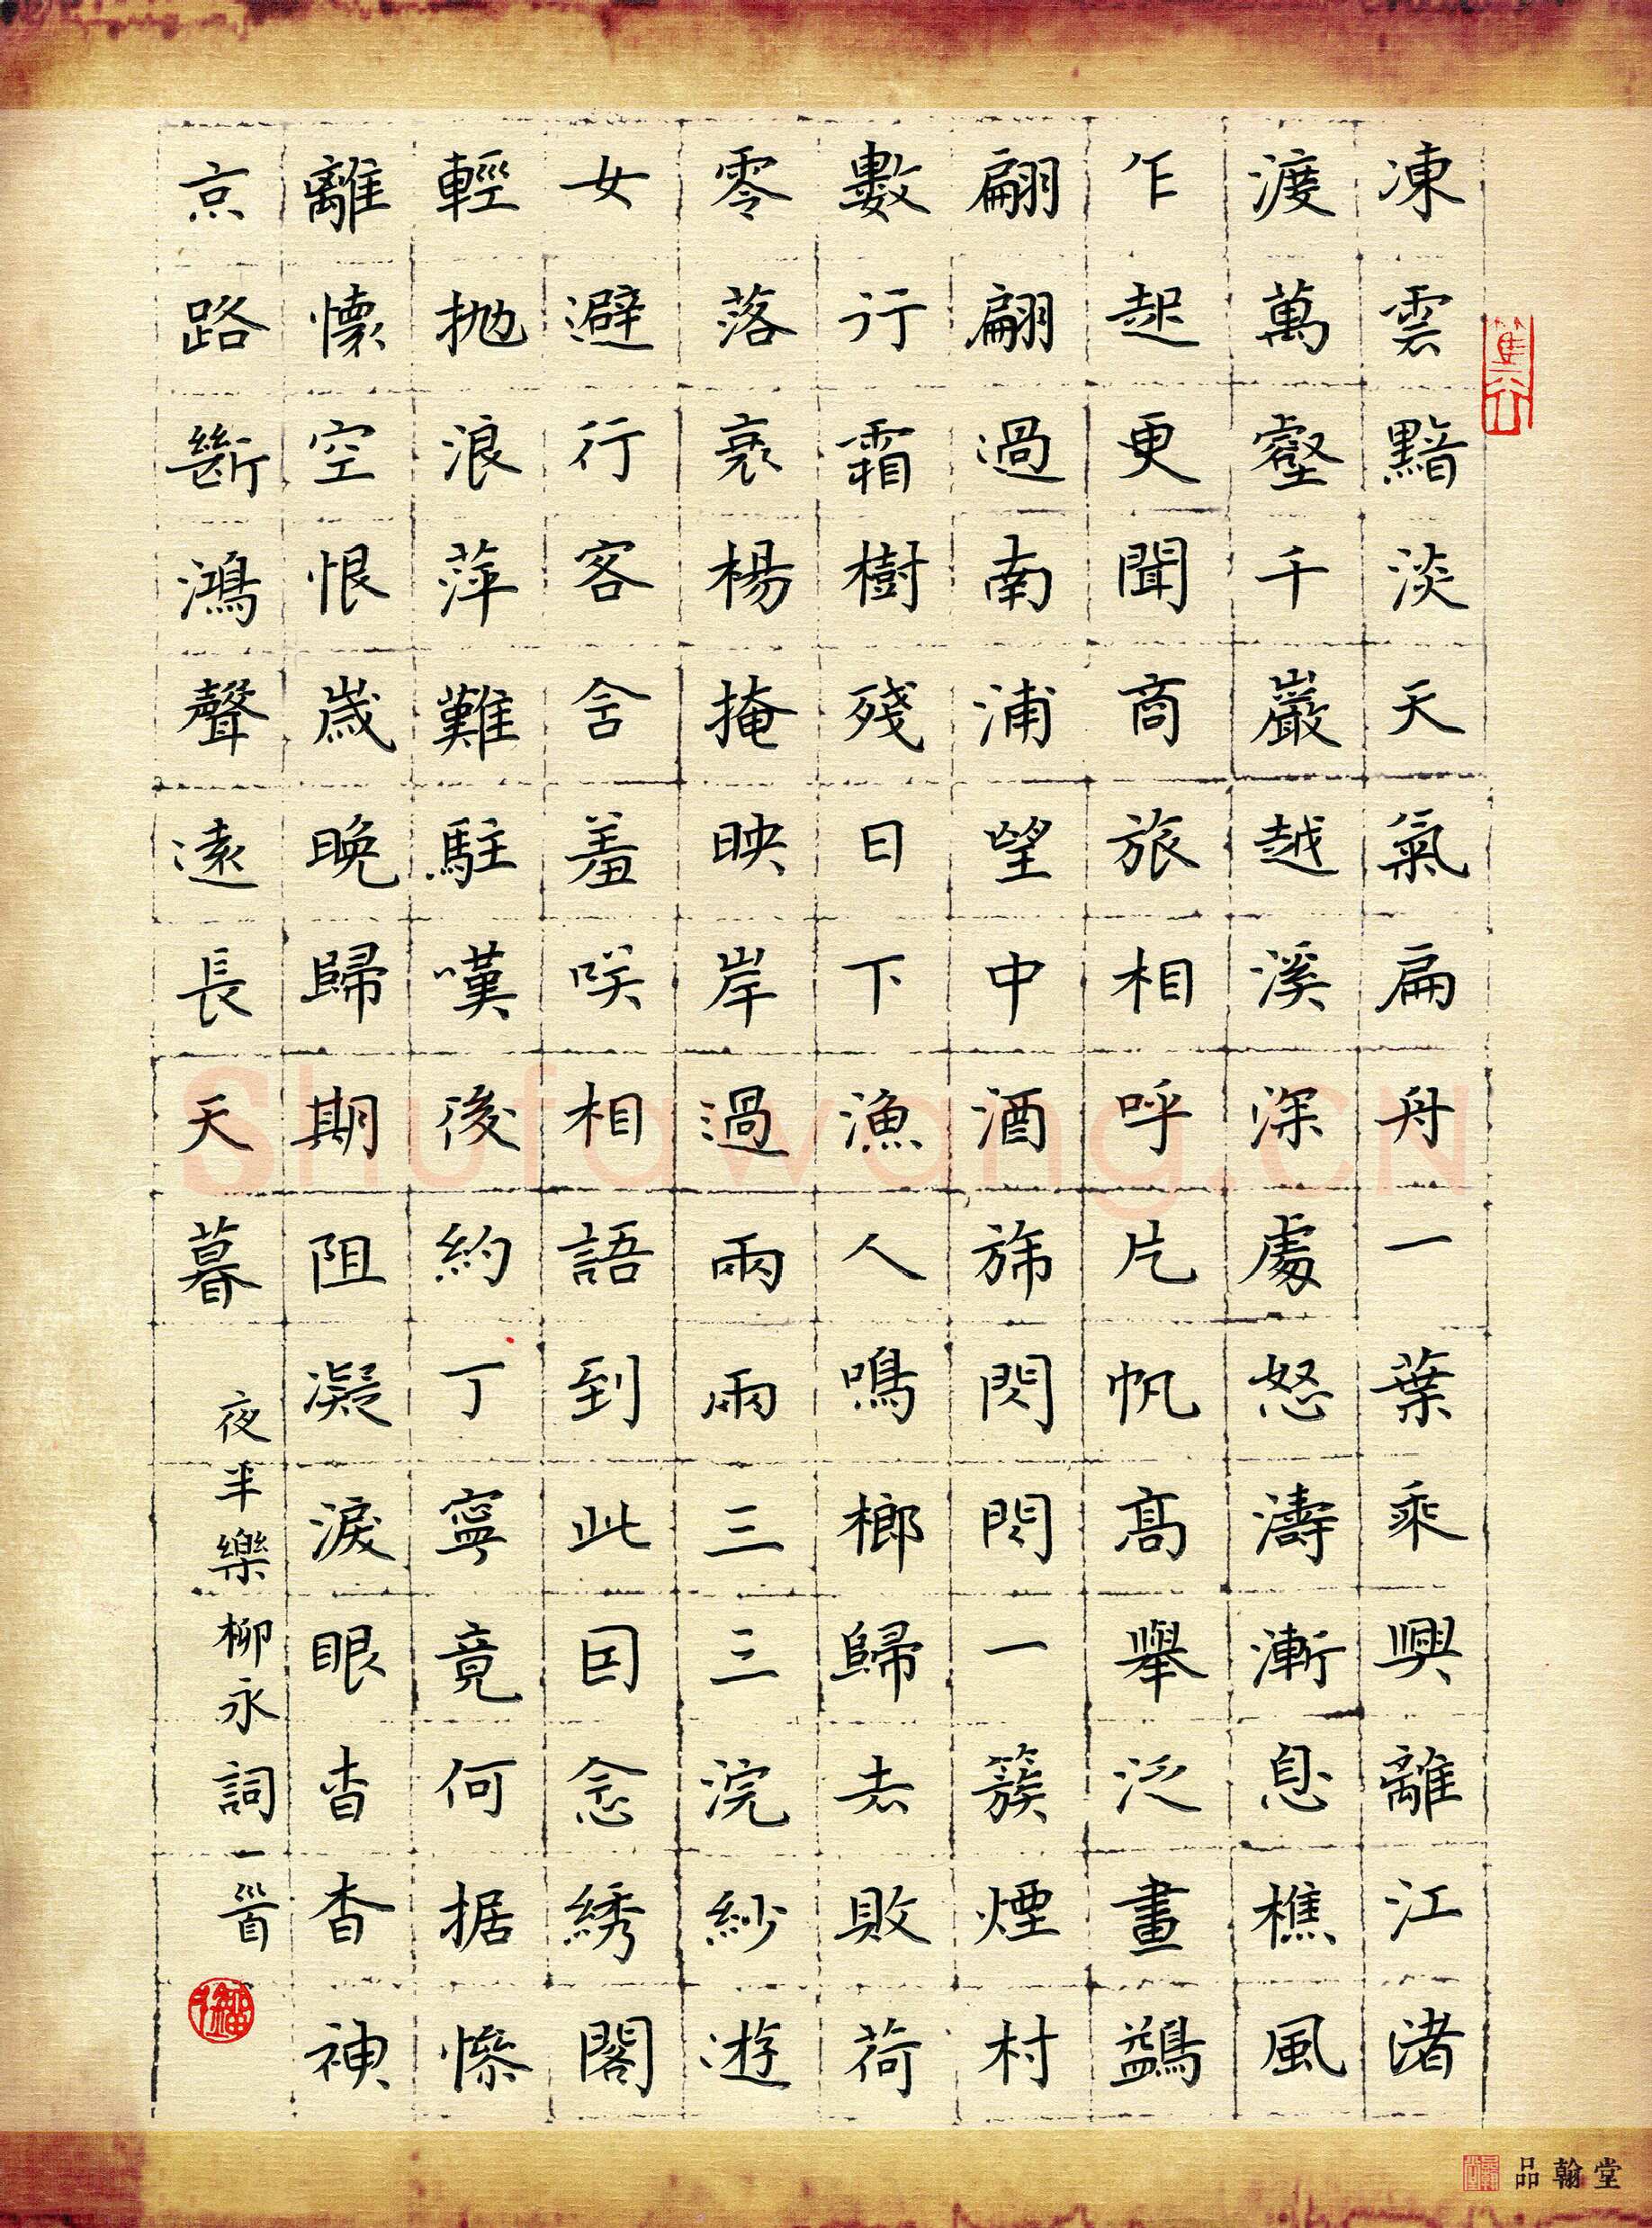 凍雲黯淡天氣扁舟一葉乘興離江渚
渡萬壑千巖越溪深處怒濤漸息樵風
乍起更聞商旅相呼片帆高舉泛畫鷁
翩翩過南浦望中酒旆閃閃一簇煙村
數行霜樹殘日下漁人鳴榔歸去敗荷
零落衰楊掩映岸過兩兩三三浣紗遊
女避行客含羞咲相語到此因念綉閣
輕拋浪萍難駐嘆後約丁寧竟何据慘
離懷空恨歲晚歸期阻凝淚眼杳杳神
京路斷鴻聲遠長天暮
夜半樂柳永詞一首
品翰堂
Shufawang.CN